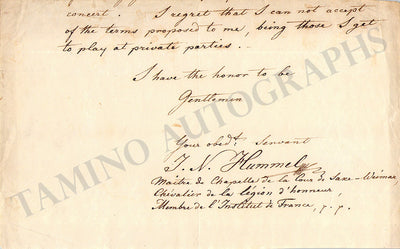 concert. I regret that I can not accept
of the terms proposed to me, being those I get
to play at private parties.
I have the honor to be
Gentlemen
Your obedt. Servant
J. N. Hummel
Maître de Chapelle de la Cour de Saxe-Weimar
Chevalier de la légion d'honneur,
Membre de l'Institut de France, p. p.
TAMINO AUTOGRAPHS